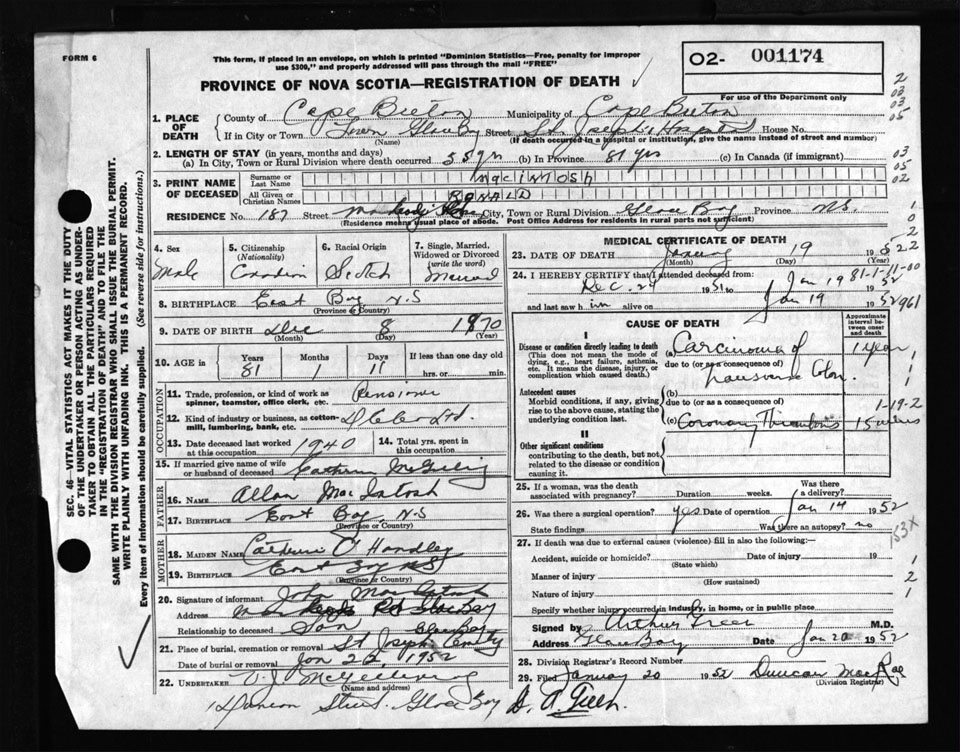 FORM 6
This form, if placed in an envelope, on which is printed "Dominion Statistics—Free, penalty for improper
use $300," and properly addressed will pass through the mail "FREE"
PROVINCE OF NOVA SCOTIA—REGISTRATION OF DEATH
O2- 001174
For use of the Department only
1. PLACE OF DEATH
County of Cape Breton Municipality of Cape Breton
If in City or Town Town Glace Bay Street St. Joseph's Hospital House No.
(Name) (If death occurred in a hospital or institution, give the name instead of street and number)
2. LENGTH OF STAY (in years, months and days)
(a) In City, Town or Rural Division where death occurred 55 yrs (b) In Province 81 yrs (c) In Canada (if immigrant)
3. PRINT NAME OF DECEASED
Surname or Last Name MacIntosh
All Given or Christian Names RONALD
RESIDENCE No. 187 Street City, Town or Rural Division Glace Bay Province N.S.
(Residence means usual place of abode. Post Office Address for residents in rural parts not sufficient)
4. Sex Male
5. Citizenship (Nationality) Canadian
6. Racial Origin Scotch
7. Single, Married, Widowed or Divorced (write the word) Married
8. BIRTHPLACE East Bay N.S
(Province or Country)
9. DATE OF BIRTH Dec 8 1870
(Month) (Day) (Year)
10. AGE in Years 81 Months 1 Days 11 If less than one day old
hrs. or min.
OCCUPATION
11. Trade, profession, or kind of work as spinner, teamster, office clerk, etc. Pensioner
12. Kind of industry or business, as cotton-mill, lumbering, bank, etc.
13. Date deceased last worked at this occupation 1940
14. Total yrs. spent in this occupation
15. If married give name of wife or husband of deceased
FATHER
16. NAME Allan MacIntosh
17. BIRTHPLACE East Bay N.S
(Province or Country)
MOTHER
18. MAIDEN NAME Catherine O'Handley
19. BIRTHPLACE East Bay NS
(Province or Country)
20. Signature of informant John MacIntosh
Address Rd Glace Bay
Relationship to deceased Son
21. Place of burial, cremation or removal St Joseph Glace Bay
Date of burial or removal Jan 22, 1952
22. UNDERTAKER
(Name and address)
Street. Glace Bay
MEDICAL CERTIFICATE OF DEATH
23. DATE OF DEATH January 19 1952
(Month) (Day) (Year)
24. I HEREBY CERTIFY that I attended deceased from:
Dec. 24 1951 to Jan 19 1952
and last saw him alive on Jan 19 1952
81-1-11-00
961
CAUSE OF DEATH
Approximate interval between onset and death
I
Disease or condition directly leading to death
(This does not mean the mode of dying, e.g., heart failure, asthenia, etc. It means the disease, injury, or complication which caused death.)
(a) Carcinoma of 1 year
due to (or as a consequence of) transverse Colon.
Antecedent causes
Morbid conditions, if any, giving rise to the above cause, stating the underlying condition last
(b)
due to (or as a consequence of)
(c) Coronary Thrombosis 15 minutes
1-19-2
II
Other significant conditions
contributing to the death, but not related to the disease or condition causing it.
25. If a woman, was the death associated with pregnancy? Duration weeks. Was there a delivery?
26. Was there a surgical operation? yes Date of operation Jan 14 1952
State findings Was there an autopsy? no
153x
27. If death was due to external causes (violence) fill in also the following:—
Accident, suicide or homicide? Date of injury 19
(State which)
Manner of injury
(How sustained)
Nature of injury
Specify whether injury occurred in industry, in home, or in public place
Signed by Arthur M.D.
Address Glace Bay Date Jan 20 1952
28. Division Registrar's Record Number
29. Filed January 20 1952 Duncan MacRae
(Division Registrar)
SEC. 46—VITAL STATISTICS ACT MAKES IT THE DUTY
OF THE UNDERTAKER OR PERSON ACTING AS UNDER-
TAKER TO OBTAIN ALL THE PARTICULARS REQUIRED
IN THE "REGISTRATION OF DEATH" AND TO FILE THE
SAME WITH THE DIVISION REGISTRAR WHO SHALL ISSUE THE BURIAL PERMIT.
WRITE PLAINLY WITH UNFADING INK. THIS IS A PERMANENT RECORD.
Every item of information should be carefully supplied. (See reverse side for instructions.)